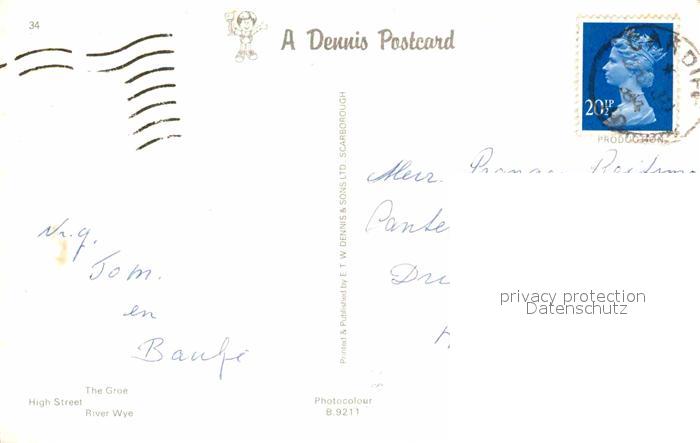 34
A Dennis Postcard
20½P
CARDIFF
PRODUCTION
Printed & Published by E. T. W. DENNIS & SONS LTD. SCARBOROUGH
Mevr.
Cante
Dre
Nr. 9.
Tom.
en
privacy protection
Datenschutz
The Groe
High Street
River Wye
Photocolour
B.9211